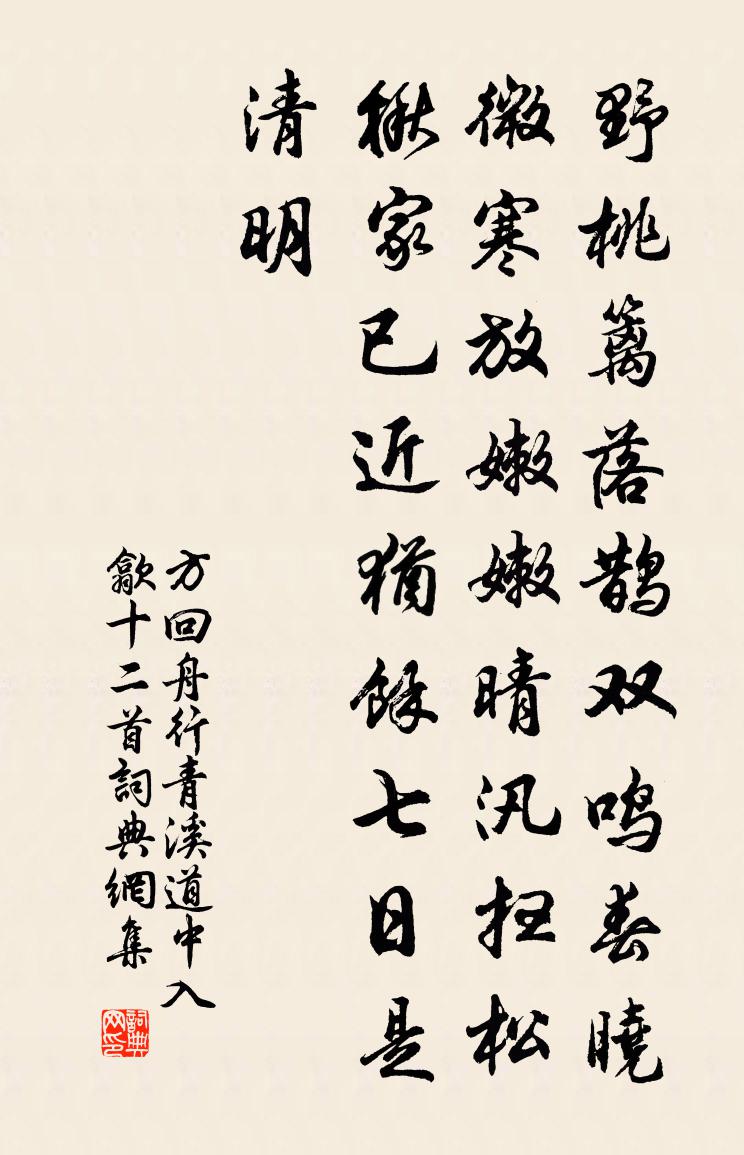 野桃篱落鹊双鸣春晓
微寒放嫩嫩晴汎扫松
楸家已近犹馀七日是
清明
方回舟行青溪道中入
歙十二首詞典網集
詞典网印